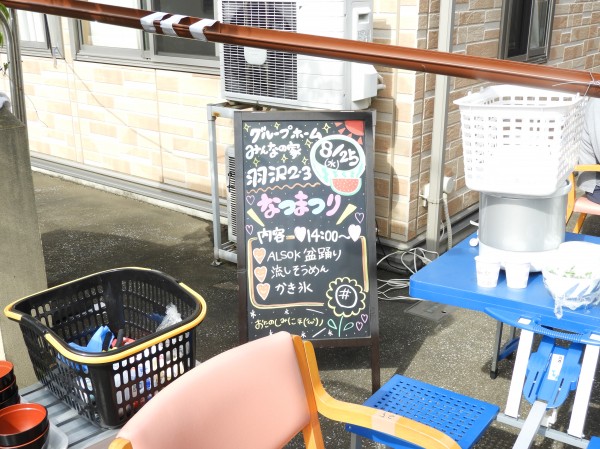 グループホーム
みんなの家
羽沢2・3
8/25
(水)
なつまつり
内容 14:00〜
ALSOK 盆踊り
流しそうめん
かき氷
#